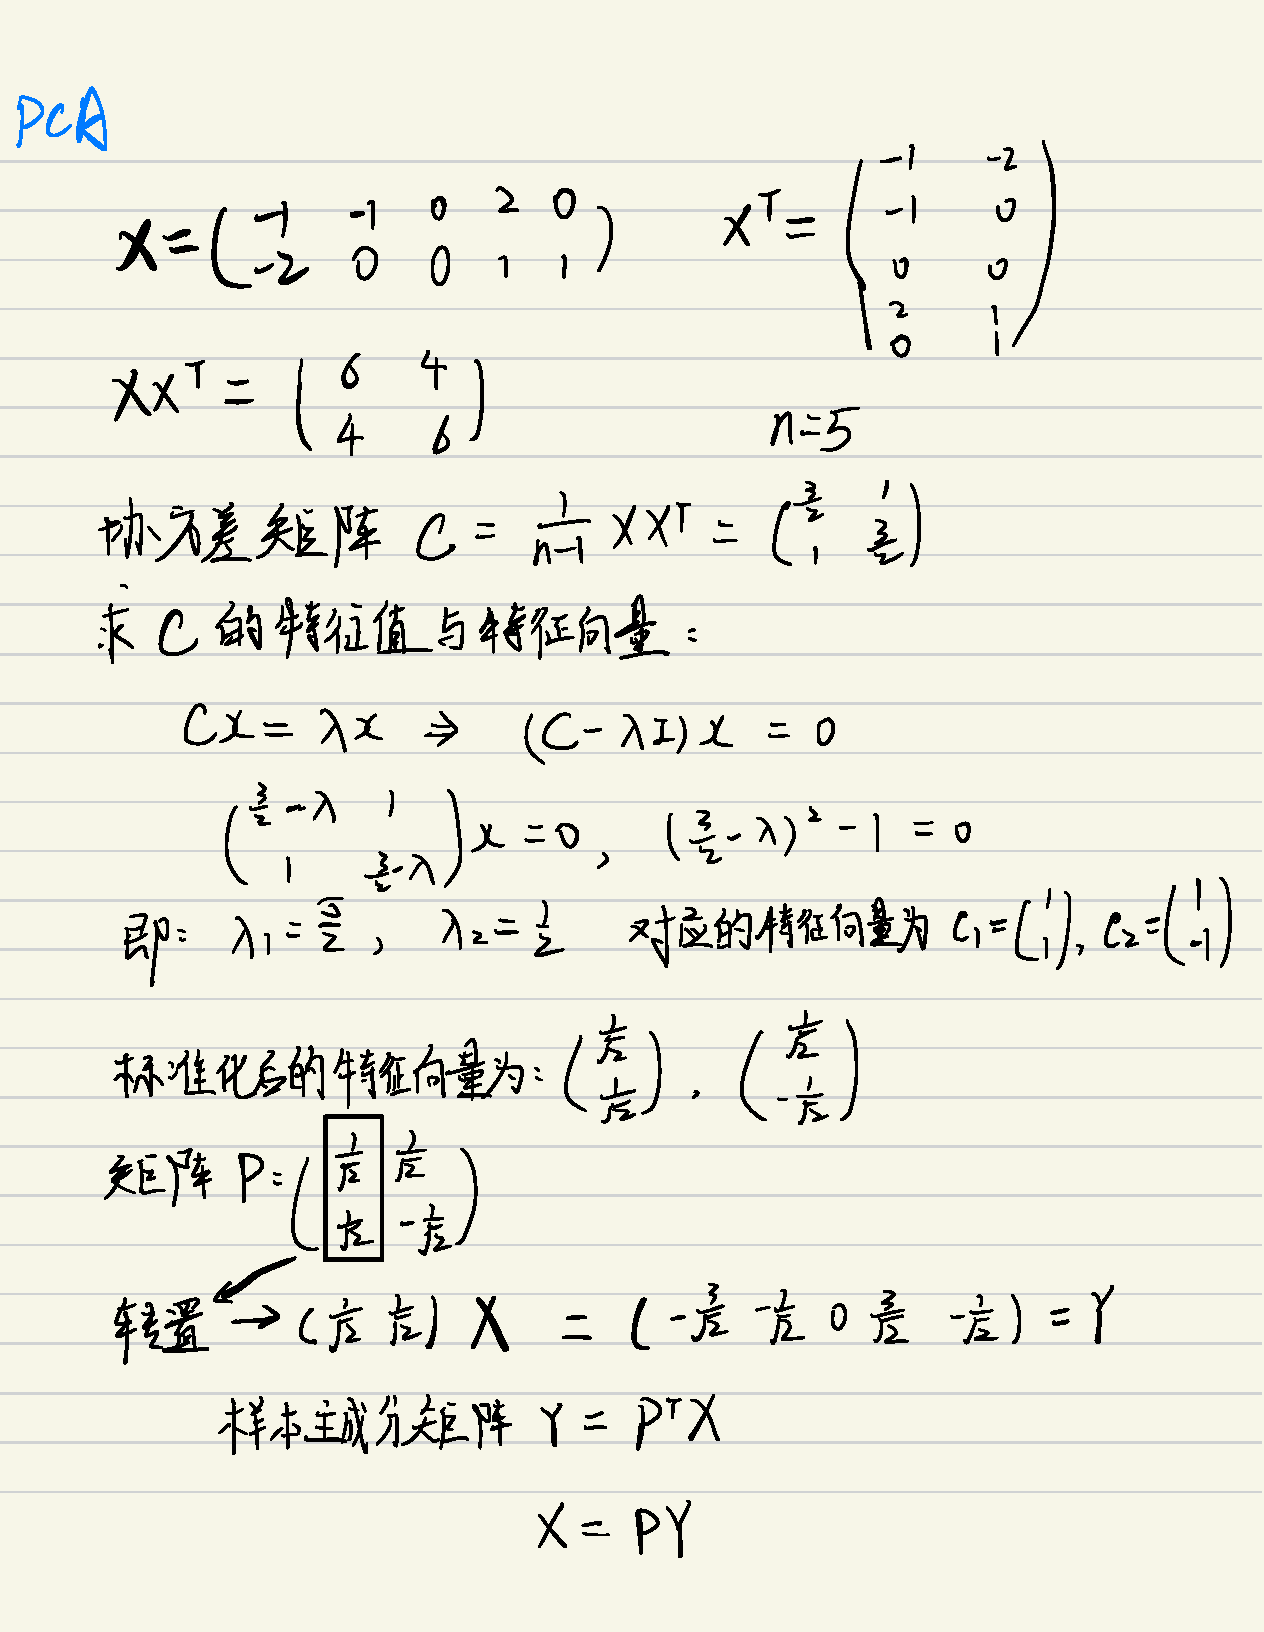 PCA
X = ( -1 -1 0 2 0 ; -2 0 0 1 1 )    X^T = ( -1 -2 ; -1 0 ; 0 0 ; 2 1 ; 0 1 )
XX^T = ( 6 4 ; 4 6 )    n=5
协方差矩阵 C = 1/(n-1) XX^T = ( 3/2 1 ; 1 3/2 )
求 C 的特征值与特征向量:
Cx = λx ⇒ (C-λI)x = 0
( 3/2-λ 1 ; 1 3/2-λ ) x = 0, (3/2-λ)² - 1 = 0
即: λ1 = 5/2, λ2 = 1/2 对应的特征向量为 C1 = ( 1 ; 1 ), C2 = ( 1 ; -1 )
标准化后的特征向量为: ( 1/√2 ; 1/√2 ), ( 1/√2 ; -1/√2 )
矩阵 P: ( 1/√2 1/√2 ; 1/√2 -1/√2 )
转置 → ( 1/√2 1/√2 ) X = ( -3/√2 -1/√2 0 3/√2 -1/√2 ) = Y
样本主成分矩阵 Y = P^T X
X = PY